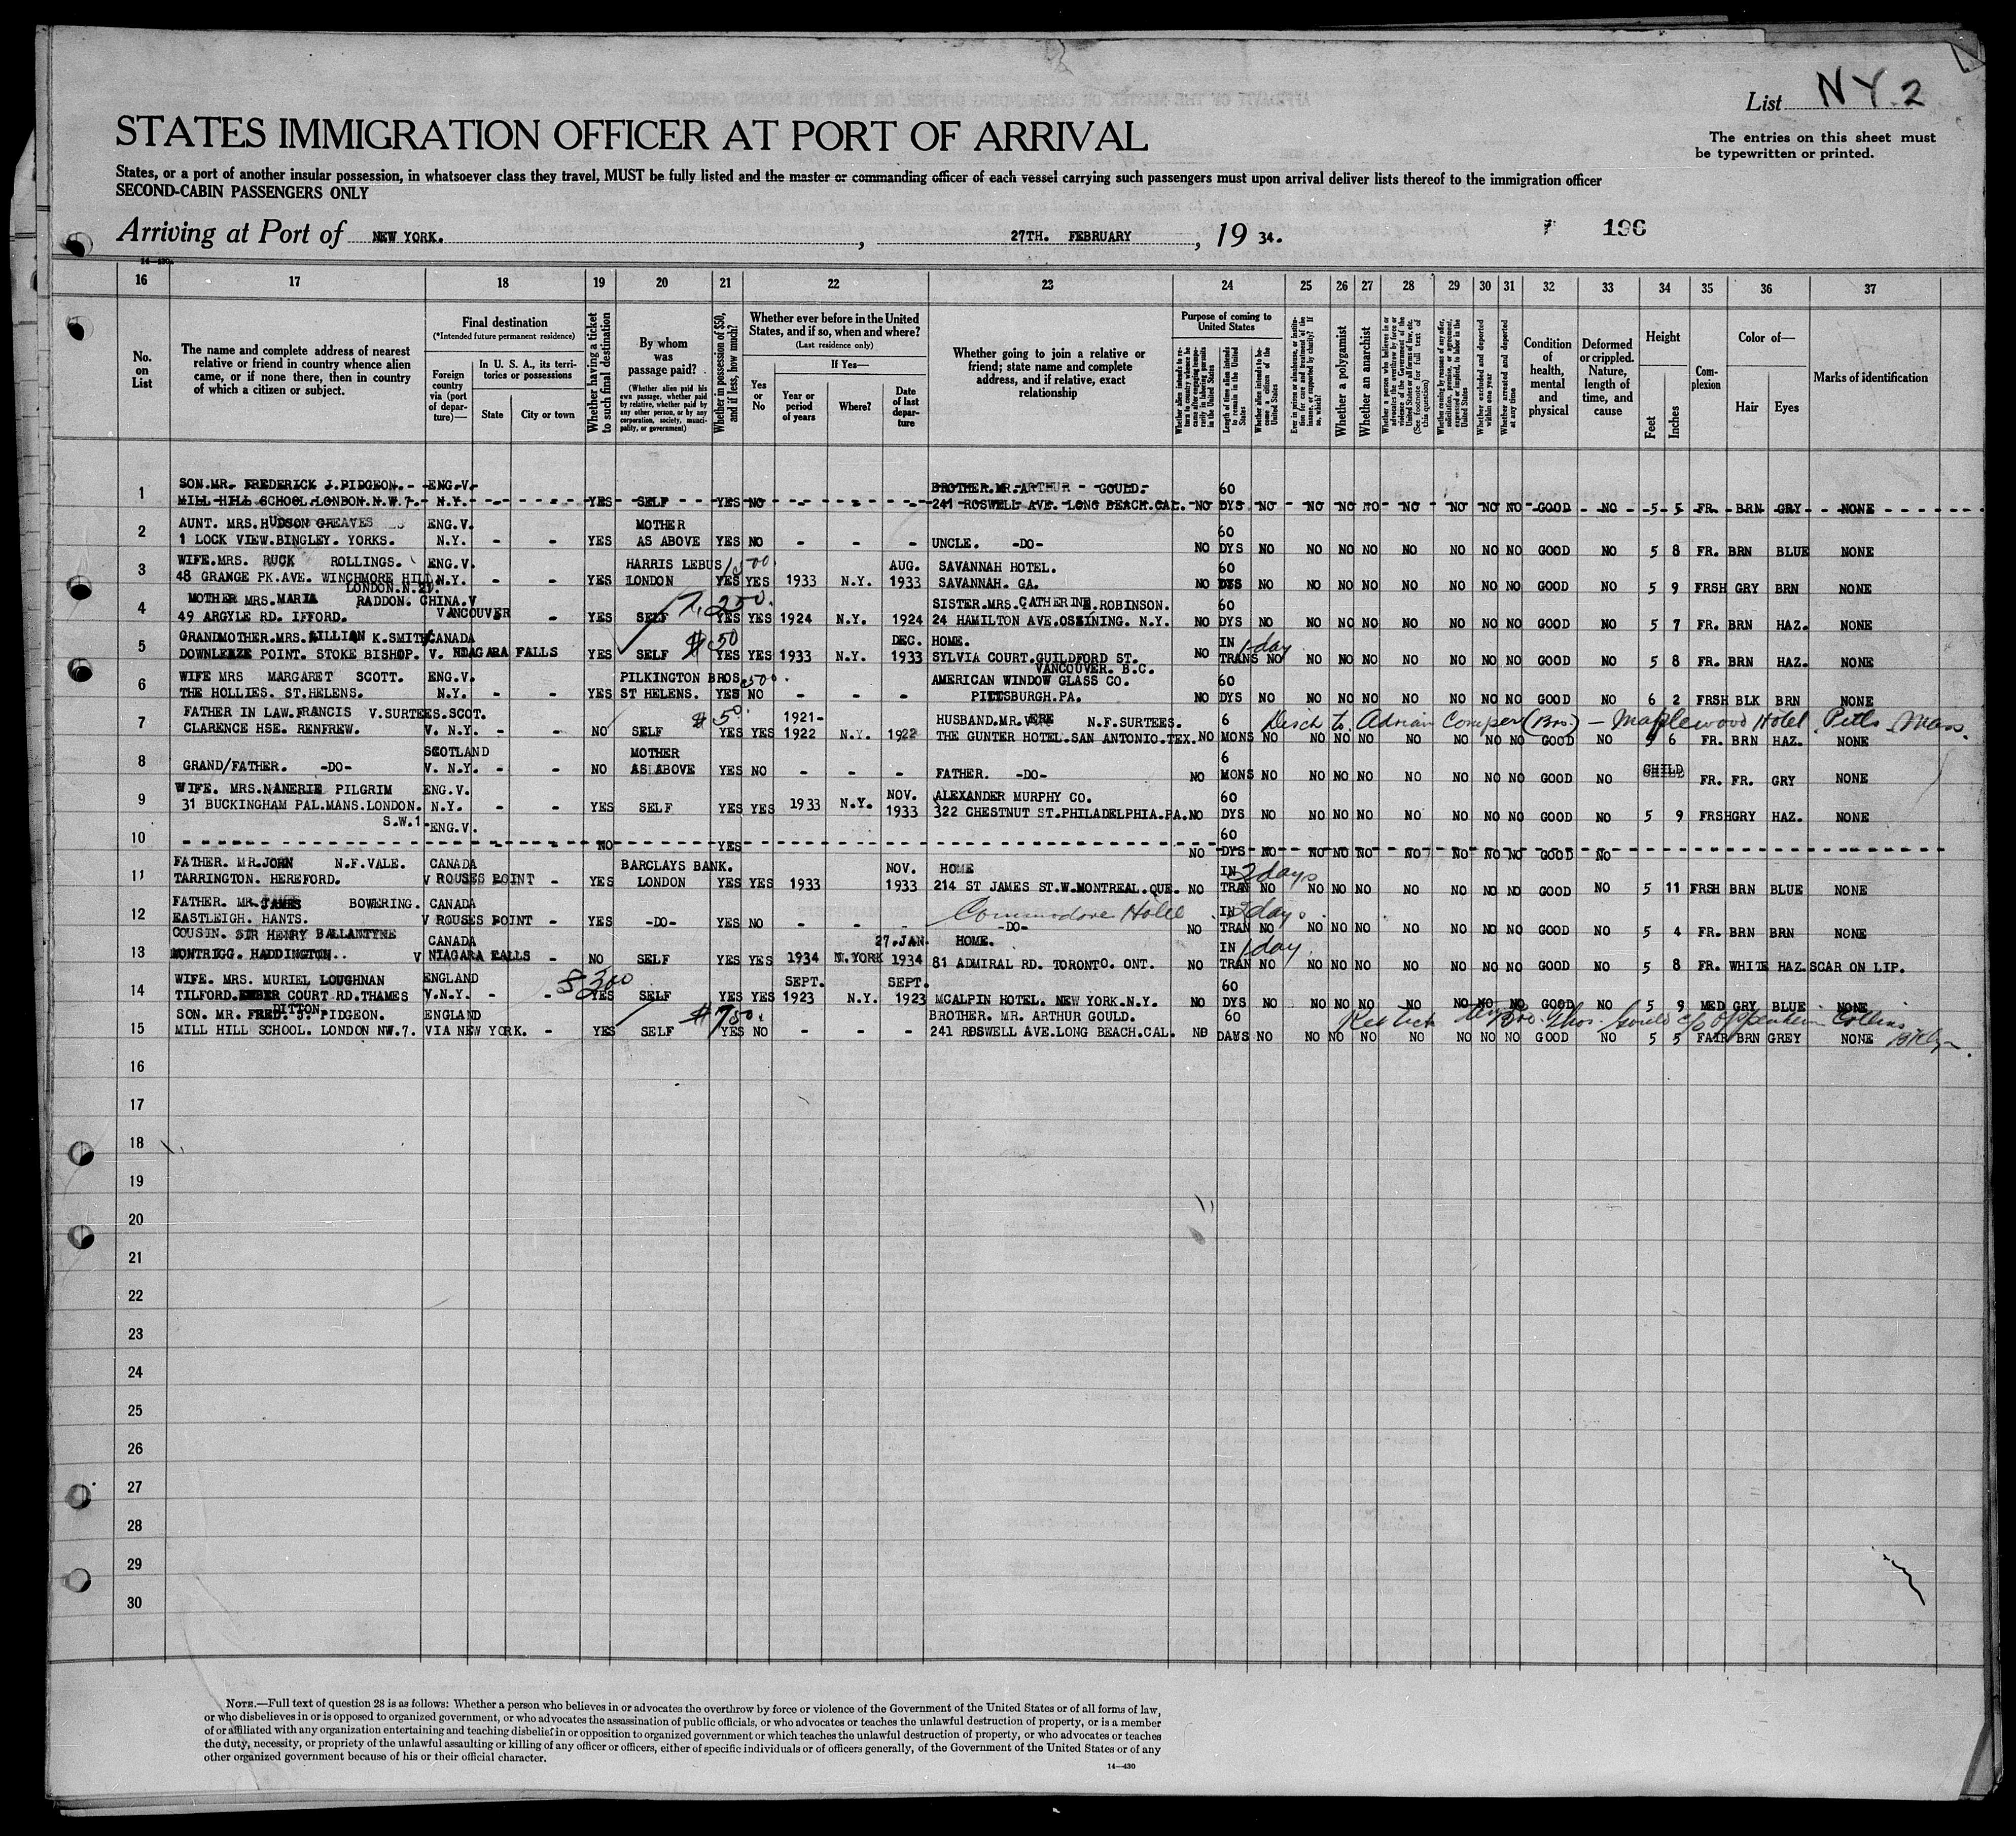 List NY. 2
STATES IMMIGRATION OFFICER AT PORT OF ARRIVAL
The entries on this sheet must
be typewritten or printed.
States, or a port of another insular possession, in whatsoever class they travel, MUST be fully listed and the master or commanding officer of each vessel carrying such passengers must upon arrival deliver lists thereof to the immigration officer
SECOND-CABIN PASSENGERS ONLY
Arriving at Port of NEW YORK. , 27TH. FEBRUARY , 19 34. 196
14-430
16 17 18 19 20 21 22 23 24 25 26 27 28 29 30 31 32 33 34 35 36 37
No. on List
The name and complete address of nearest relative or friend in country whence alien came, or if none there, then in country of which a citizen or subject.
Final destination
(*Intended future permanent residence)
Foreign country via (port of departure)—
In U. S. A., its territories or possessions
State City or town
Whether having a ticket to such final destination
By whom was passage paid?
(Whether alien paid his own passage, whether paid by relative, whether paid by any other person, or by any corporation, society, municipality, or government)
Whether in possession of $50, and if less, how much?
Whether ever before in the United States, and if so, when and where?
(Last residence only)
Yes or No
If Yes—
Year or period of years Where? Date of last departure
Whether going to join a relative or friend; state name and complete address, and if relative, exact relationship
Purpose of coming to United States
Whether alien intends to return to country whence he came after engaging temporarily in laboring pursuits in the United States
Length of time alien intends to remain in the United States
Whether alien intends to become a citizen of the United States
Ever in prison or almshouse, or institution for care and treatment of the insane, or supported by charity? If so, which?
Whether a polygamist
Whether an anarchist
Whether a person who believes in or advocates the overthrow by force or violence of the Government of the United States or all forms of law, etc. (See footnote for full text of this question)
Whether coming by reason of any offer, solicitation, promise, or agreement, expressed or implied, to labor in the United States
Whether excluded and deported within one year
Whether arrested and deported at any time
Condition of health, mental and physical
Deformed or crippled. Nature, length of time, and cause
Height
Feet Inches
Complexion
Color of—
Hair Eyes
Marks of identification
1 SON.MR. FREDERICK J.PIDGEON. ENG.V. BROTHER.MR.ARTHUR GOULD. 60
MILL HILL SCHOOL.LONDON.N.W.7. N.Y. - - YES SELF YES NO - - - 241 ROSWELL AVE. LONG BEACH.CAL. NO DYS NO NO NO NO NO NO NO NO GOOD NO 5 5 FR. BRN GRY NONE
2 AUNT. MRS.HUDSON GREAVES ENG.V. MOTHER 60
1 LOCK VIEW.BINGLEY. YORKS. N.Y. - - YES AS ABOVE YES NO - - - UNCLE. -DO- NO DYS NO NO NO NO NO NO NO NO GOOD NO 5 8 FR. BRN BLUE NONE
3 WIFE.MRS. RUCK ROLLINGS. ENG.V. HARRIS LEBUS 1500. AUG. SAVANNAH HOTEL. 60
48 GRANGE PK.AVE. WINCHMORE HILL. N.Y. - - YES LONDON YES YES 1933 N.Y. 1933 SAVANNAH. GA. NO DYS NO NO NO NO NO NO NO NO GOOD NO 5 9 FRSH GRY BRN NONE
LONDON.N.21.
4 MOTHER MRS.MARIA RADDON. CHINA.V 250. SISTER.MRS.CATHERINE.ROBINSON. 60
49 ARGYLE RD. IFFORD. VANCOUVER - YES SELF YES YES 1924 N.Y. 1924 24 HAMILTON AVE.OSSINING. N.Y. NO DYS NO NO NO NO NO NO NO NO GOOD NO 5 7 FR. BRN HAZ. NONE
5 GRANDMOTHER.MRS.LILLIAN K.SMITH CANADA $50 DEC. HOME. IN 1 day
DOWNLEAZE POINT. STOKE BISHOP. V. NIAGARA FALLS YES SELF YES YES 1933 N.Y. 1933 SYLVIA COURT.GUILDFORD ST. NO TRANS NO NO NO NO NO NO NO NO GOOD NO 5 8 FR. BRN HAZ. NONE
VANCOUVER. B.C.
6 WIFE MRS MARGARET SCOTT. ENG.V. PILKINGTON BROS. 500. AMERICAN WINDOW GLASS CO. 60
THE HOLLIES. ST.HELENS. N.Y. - - YES ST HELENS. YES NO - - - PITTSBURGH.PA. NO DYS NO NO NO NO NO NO NO NO GOOD NO 6 2 FRSH BLK BRN NONE
7 FATHER IN LAW.FRANCIS V.SURTEES.SCOT. $50 1921- HUSBAND.MR.VERE N.F.SURTEES. 6 Disch to Adrian Comper (Bro) - Maplewood Hotel, Pitts. Mass.
CLARENCE HSE. RENFREW. V. N.Y. - - NO SELF YES YES 1922 N.Y. 1922 THE GUNTER HOTEL.SAN ANTONIO.TEX. NO MONS NO NO NO NO NO NO NO NO GOOD NO 5 6 FR. BRN HAZ. NONE
8 SCOTLAND MOTHER 6 CHILD
GRAND/FATHER. -DO- V. N.Y. - - NO AS ABOVE YES NO - - - FATHER. -DO- NO MONS NO NO NO NO NO NO NO NO GOOD NO FR. FR. GRY NONE
9 WIFE. MRS.NANERIE PILGRIM ENG.V. NOV. ALEXANDER MURPHY CO. 60
31 BUCKINGHAM PAL.MANS.LONDON. N.Y. - - YES SELF YES YES 1933 N.Y. 1933 322 CHESTNUT ST.PHILADELPHIA.PA. NO DYS NO NO NO NO NO NO NO NO GOOD NO 5 9 FRSH GRY HAZ. NONE
S.W.1.
10 ENG.V. - - NO YES 60
NO DYS NO NO NO NO NO NO NO NO GOOD NO
11 FATHER. MR.JOHN N.F.VALE. CANADA BARCLAYS BANK. NOV. HOME IN 2 days
TARRINGTON. HEREFORD. V ROUSES POINT - YES LONDON YES YES 1933 1933 214 ST JAMES ST.W.MONTREAL.QUE. NO TRAN NO NO NO NO NO NO NO NO GOOD NO 5 11 FRSH BRN BLUE NONE
12 FATHER. MR.JAMES BOWERING. CANADA Commodore Hotel IN 2 days.
EASTLEIGH. HANTS. V ROUSES POINT - YES -DO- YES NO - - - -DO- NO TRAN NO NO NO NO NO NO NO NO GOOD NO 5 4 FR. BRN BRN NONE
13 COUSIN. SIR HENRY BALLANTYNE CANADA 27.JAN. HOME. IN 1 day.
MONTRIGG. HADDINGTON.. V NIAGARA FALLS - NO SELF YES YES 1934 N.YORK 1934 81 ADMIRAL RD. TORONTO. ONT. NO TRAN NO NO NO NO NO NO NO NO GOOD NO 5 8 FR. WHITE HAZ. SCAR ON LIP.
14 WIFE. MRS. MURIEL LOUGHNAN ENGLAND $300 SEPT. SEPT. 60
TILFORD.EMBER COURT RD.THAMES V.N.Y. - - YES SELF YES YES 1923 N.Y. 1923 MCALPIN HOTEL. NEW YORK.N.Y. NO DYS NO NO NO NO NO NO NO NO GOOD NO 5 9 MED GRY BLUE NONE
DITTON.
15 SON. MR. FRED. J. PIDGEON. ENGLAND $750. BROTHER. MR. ARTHUR GOULD. 60 Bro. Thos. Gould c/o Oppenheim Collins
MILL HILL SCHOOL. LONDON NW.7. VIA NEW YORK. - YES SELF YES NO - - - 241 ROSWELL AVE.LONG BEACH.CAL. NO DAYS NO NO NO NO NO NO NO NO GOOD NO 5 5 FAIR BRN GREY NONE Bklyn.
16
17
18
19
20
21
22
23
24
25
26
27
28
29
30
NOTE.—Full text of question 28 is as follows: Whether a person who believes in or advocates the overthrow by force or violence of the Government of the United States or of all forms of law,
or who disbelieves in or is opposed to organized government, or who advocates the assassination of public officials, or who advocates or teaches the unlawful destruction of property, or is a member
of or affiliated with any organization entertaining and teaching disbelief in or opposition to organized government or which teaches the unlawful destruction of property, or who advocates or teaches
the duty, necessity, or propriety of the unlawful assaulting or killing of any officer or officers, either of specific individuals or of officers generally, of the Government of the United States or of any
other organized government because of his or their official character.
14—430